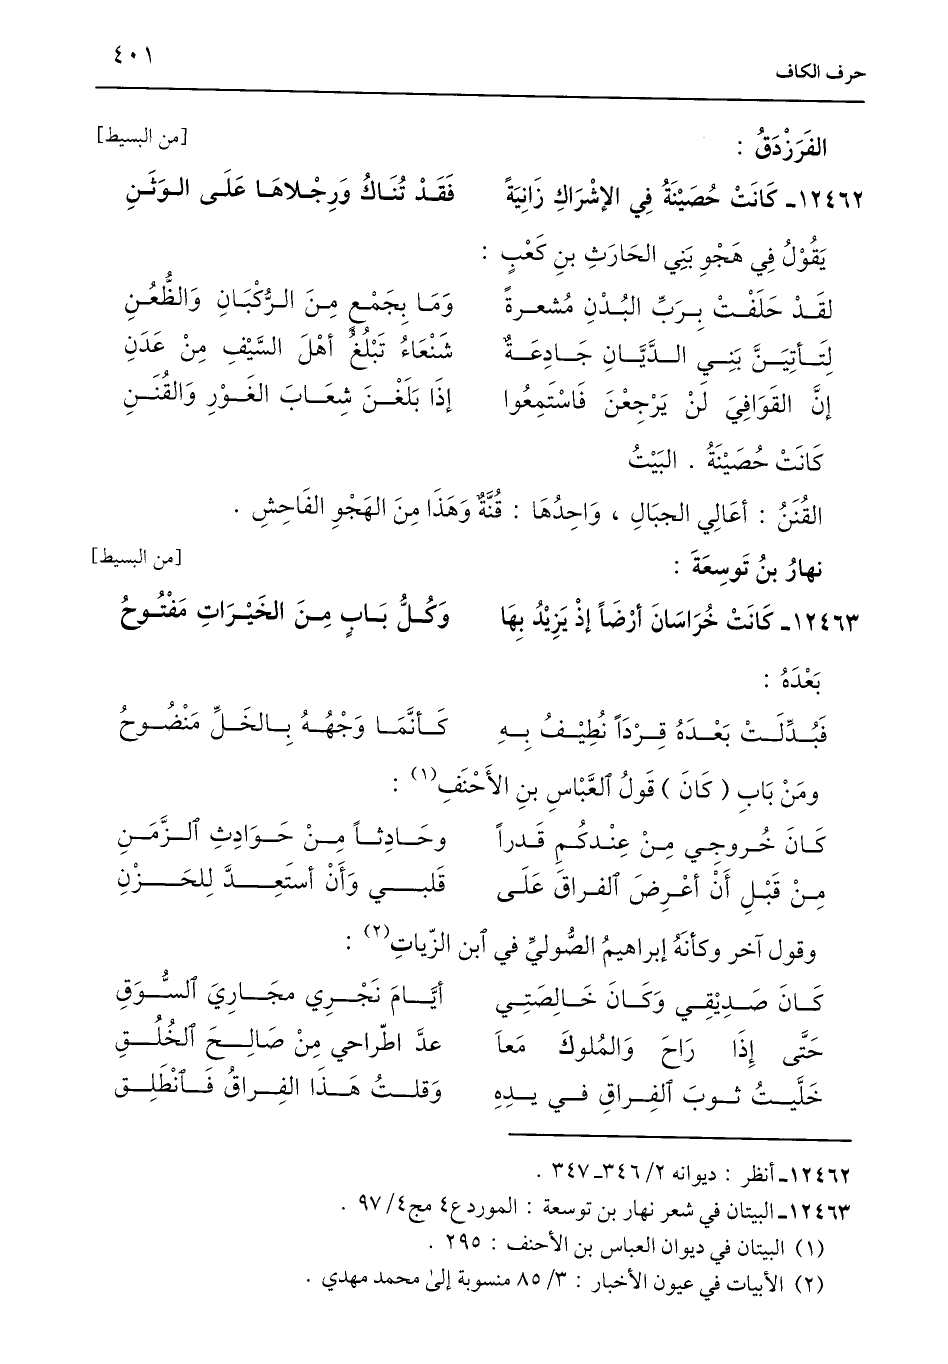 ٤٠١
حرف الكاف
الفَرَزْدَقُ : [من البسيط]
١٢٤٦٢ـ كَانَتْ حُصَيْنَةُ فِي الإشْرَاكِ زَانِيَةً فَقَدْ تُنَاكُ وَرِجْلاهَا عَلَى الوَثَنِ
يَقُوْلُ فِي هَجْوِ بَنِي الحَارَثِ بنِ كَعْبٍ :
لقَدْ حَلَفْتُ بِرَبِّ البُدْنِ مُشعرةً وَمَا بِجَمْعٍ مِنَ الرُّكْبَانِ وَالظُّعُنِ
لِتَأتِيَنَّ بَنِي الدَّيَّانِ جَادِعَةٌ شَنْعَاءُ تَبْلُغُ أَهْلَ السَّيْفِ مِنْ عَدَنِ
إنَّ القَوَافِيَ لَنْ يَرْجِعْنَ فَاسْتَمِعُوا إذَا بَلَغْنَ شِعَابَ الغَوْرِ وَالقُنَنِ
كَانَتْ حُصَيْنَةُ . البَيْتُ
القُنَنُ : أعَالِي الجبَالِ ، وَاحِدُهَا : قُنَّةٌ وَهَذَا مِنَ الهَجْوِ الفَاحِشِ .
نهارُ بنُ تَوسِعَةَ : [من البسيط]
١٢٤٦٣ـ كَانَتْ خُرَاسَانَ أرْضَاً إذْ يَزِيْدُ بِهَا وَكُلُّ بَابٍ مِنَ الخَيْرَاتِ مَفْتُوحُ
بَعْدَهُ :
فَبُدِّلَتْ بَعْدَهُ قِرْدَاً نُطِيْفُ بِهِ كَأنَّمَا وَجْهُهُ بِالخَلِّ مَنْضُوحُ
ومَنْ بَابِ ( كَانَ ) قَولُ العَّبْاسِ بنِ الأَحْنَفِ(١) :
كَانَ خُروجِي مِنْ عِنْدكُم قَدراً وحَادِثاً مِنْ حَوَادِثِ الزَّمَنِ
مِنْ قَبْلِ أَنْ أعْرِضَ الفراقَ عَلَى قَلبِي وَأَنْ أستَعِدَّ لِلحَزْنِ
وقول آخر وكأنَهُ إبراهيمُ الصُّوليِّ في ٱبن الزّياتِ(٢) :
كَانَ صَدِيْقِي وَكَانَ خَالِصَتِي أيَّامَ نَجْرِي مجَارِيَ السُّوَقِ
حَتَّى إِذَا رَاحَ وَالمُلوكَ مَعاً عدَّ اطراحي مِنْ صَالِحِ الخُلُقِ
خَلَّيتُ ثوبَ الفِراقِ في يدِهِ وَقلتُ هَذَا الفِراقُ فَٱنْطَلِقِ
١٢٤٦٢ـ أنظر : ديوانه ٢/ ٣٤٦ـ٣٤٧ .
١٢٤٦٣ـ البيتان في شعر نهار بن توسعة : المورد ع٤ مج٤/ ٩٧ .
(١) البيتان في ديوان العباس بن الأحنف : ٢٩٥ .
(٢) الأبيات في عيون الأخبار : ٣/ ٨٥ منسوبة إلىٰ محمد مهدي .